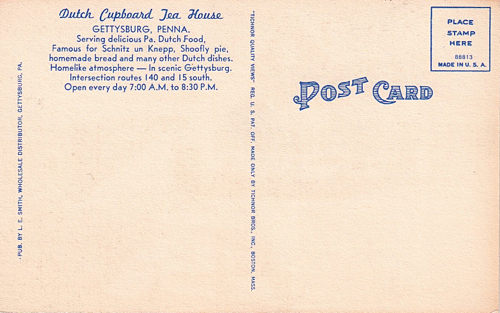 Dutch Cupboard Tea House
GETTYSBURG, PENNA.
Serving delicious Pa. Dutch Food,
Famous for Schnitz un Knepp, Shoofly pie,
homemade bread and many other Dutch dishes.
Homelike atmosphere — In scenic Gettysburg.
Intersection routes 140 and 15 south.
Open every day 7:00 A.M. to 8:30 P.M.
PUB. BY L. E. SMITH, WHOLESALE DISTRIBUTOR, GETTYSBURG, PA.
"TICHNOR QUALITY VIEWS" REG. U. S. PAT. OFF. MADE ONLY BY TICHNOR BROS., INC., BOSTON, MASS.
POST CARD
PLACE
STAMP
HERE
88813
MADE IN U. S. A.